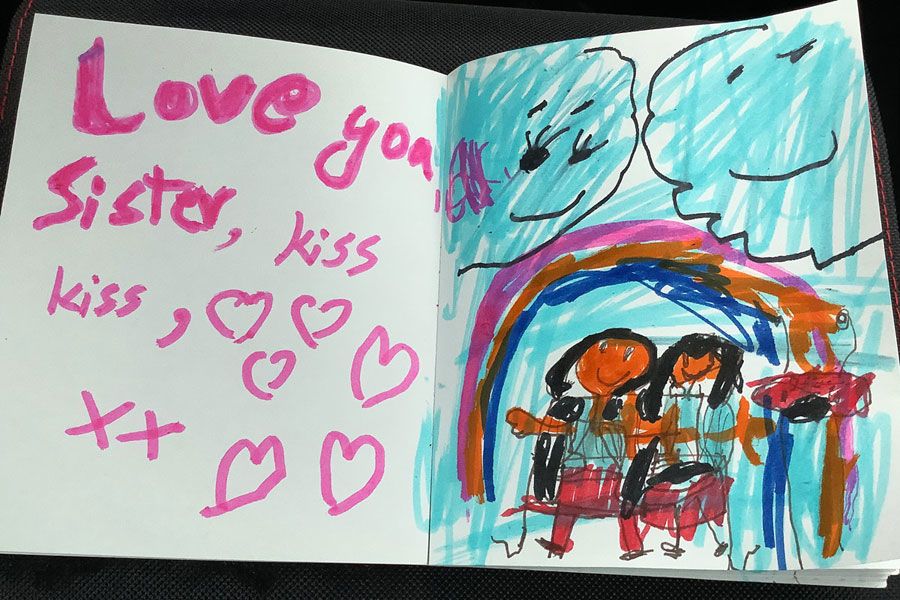 Love you
Sister, kiss
kiss,
xx